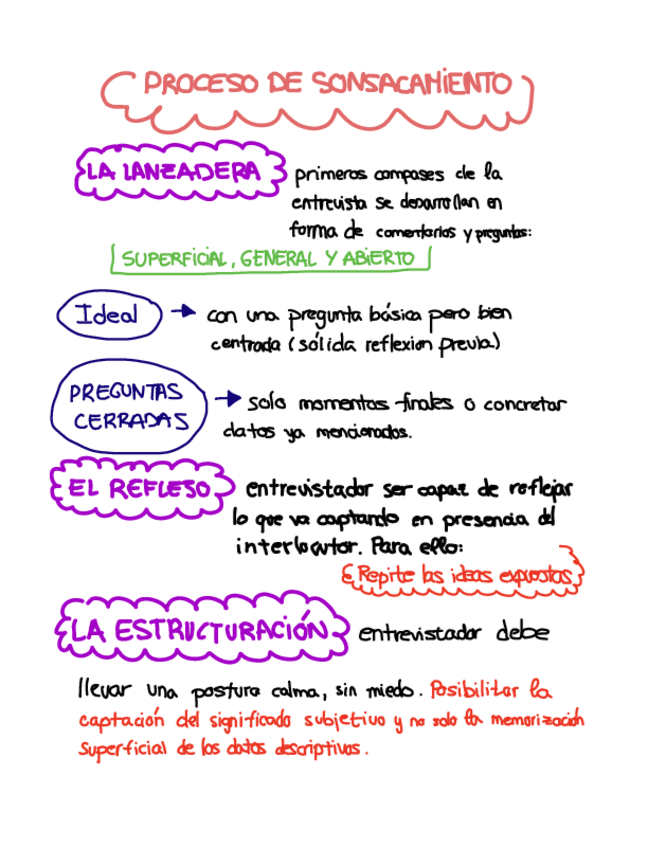 PROCESO DE SONSACAMIENTO
LA LANZADERA primeros compases de la
entrevista se desarrollan en
forma de comentarios y preguntas:
SUPERFICIAL, GENERAL Y ABIERTO
Ideal → con una pregunta básica pero bien
centrada (sólida reflexion previa)
PREGUNTAS
CERRADAS → solo momentos finales o concretar
datos ya mencionados.
EL REFLESO entrevistador ser capaz de reflejar
lo que va captando en presencia del
interlocutor. Para ello:
Repite las ideas expuestas
LA ESTRUCTURACIÓN entrevistador debe
llevar una postura calma, sin miedo. Posibilitar la
captación del significado subjetivo y no solo la memorización
superficial de los datos descriptivos.